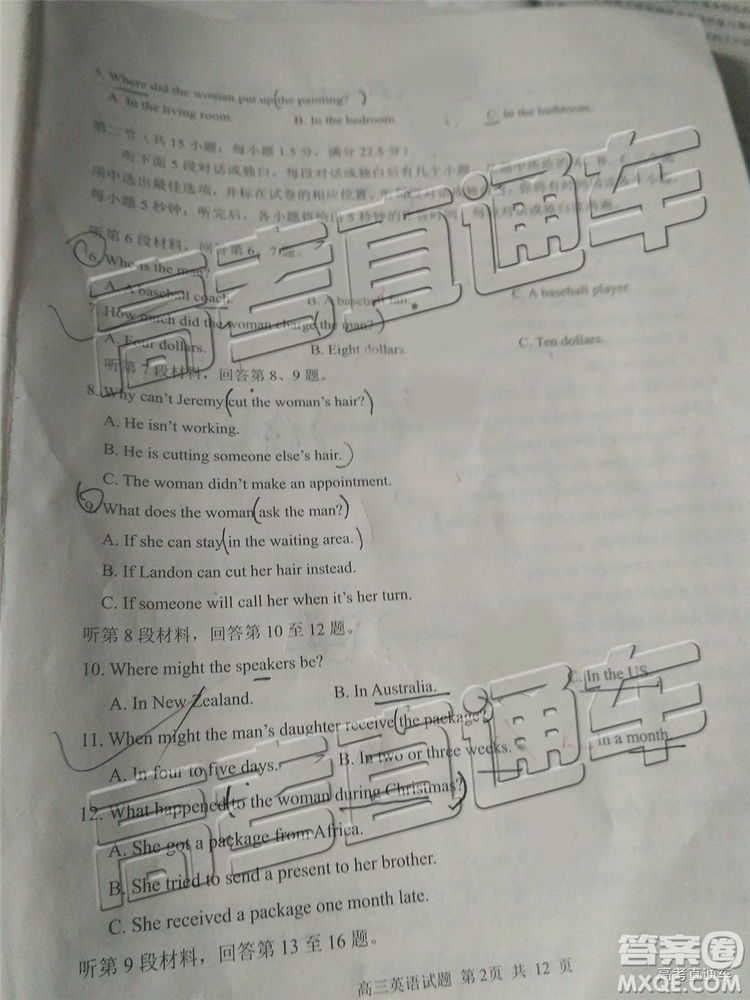 5. Where did the woman put up the painting?
A. In the living room. B. In the bedroom. C. In the bathroom.
第二节（共 15 小题；每小题 1.5 分，满分 22.5 分）
听下面 5 段对话或独白。每段对话或独白后有几个小题，从题中所给的 A、B、C 三个选
项中选出最佳选项，并标在试卷的相应位置。
每小题 5 秒钟；听完后，各小题将给出 5 秒钟的
听第 6 段材料，回答第 6、7 题。
6. Who is the man?
A. A baseball coach. B. A baseball fan. C. A baseball player.
7. How much did the woman charge the man?
A. Four dollars. B. Eight dollars. C. Ten dollars.
听第 7 段材料，回答第 8、9 题。
8. Why can't Jeremy cut the woman's hair?
A. He isn't working.
B. He is cutting someone else's hair.
C. The woman didn't make an appointment.
9. What does the woman ask the man?
A. If she can stay in the waiting area.
B. If Landon can cut her hair instead.
C. If someone will call her when it's her turn.
听第 8 段材料，回答第 10 至 12 题。
10. Where might the speakers be?
A. In New Zealand. B. In Australia. C. In the US.
11. When might the man's daughter receive the package?
A. In four to five days. B. In two or three weeks. in a month.
12. What happened to the woman during Christmas?
A. She got a package from Africa.
B. She tried to send a present to her brother.
C. She received a package one month late.
听第 9 段材料，回答第 13 至 16 题。
高三英语试题 第 2 页 共 12 页
高考直通车
高考直通车
答案卷
高考直通车
MXQE.COM